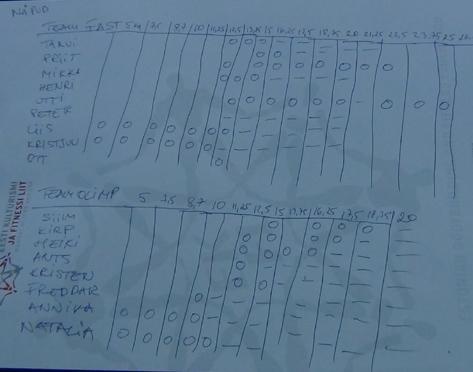 NÄPUD
TEAM FAST 5 7,5 8,7 10 11,25 12,5 13,75 15 16,25 17,5 18,75 20 21,25 22,5 23,75 25
TANVI
PRIIT
MIKK
HENRI
OTTI
PETER
LIIS
KRISTJUU
OTT
TEAM OLIMP 5 7,5 8,7 10 11,25 12,5 15 13,75 16,25 17,5 18,75 20
SIIM
KIRP
HEIKI
ANTS
KRISTEN
FREDDAR
ANNIKA
NATALIA
EESTI KULTURISMI
JA FITNESSI LIIT